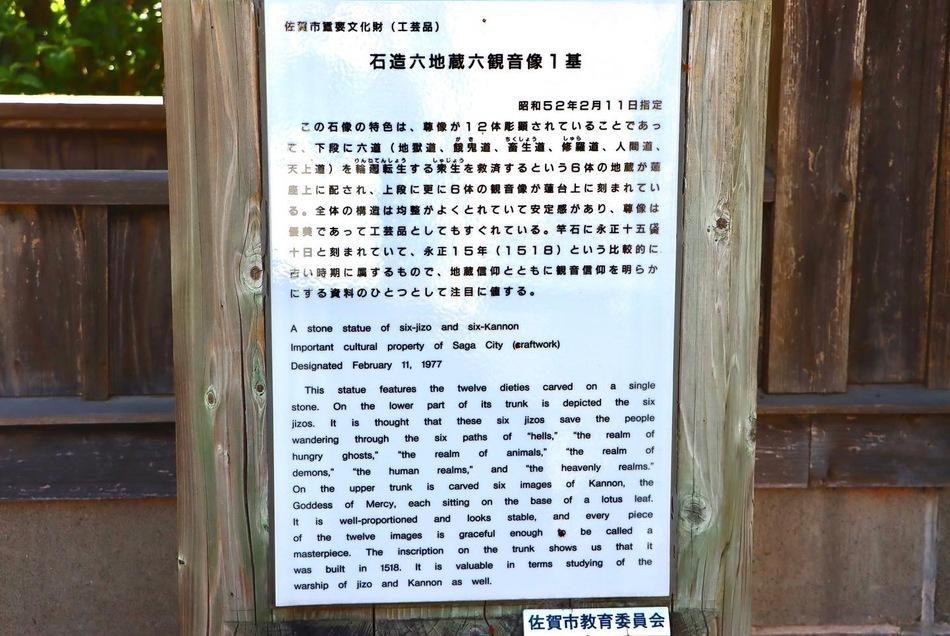 佐賀市重要文化財（工芸品）
石造六地蔵六観音像１基
昭和５２年２月１１日指定
この石像の特色は、尊像が１２体彫顕されていることであっ
て、下段に六道（地獄道、餓鬼道、畜生道、修羅道、人間道、
天上道）を輪廻転生する衆生を救済するという６体の地蔵が蓮
座上に配され、上段に更に６体の観音像が蓮台上に刻まれてい
る。全体の構造は均整がよくとれていて安定感があり、尊像は
優美であって工芸品としてもすぐれている。竿石に永正十五歳
十日と刻まれていて、永正１５年（１５１８）という比較的に
古い時期に属するもので、地蔵信仰とともに観音信仰を明らか
にする資料のひとつとして注目に値する。
A stone statue of six-jizo and six-Kannon
Important cultural property of Saga City (craftwork)
Designated February 11, 1977
This statue features the twelve dieties carved on a single
stone. On the lower part of its trunk is depicted the six
jizos. It is thought that these six jizos save the people
wandering through the six paths of "hells," "the realm of
hungry ghosts," "the realm of animals," "the realm of
demons," "the human realms," and "the heavenly realms."
On the upper trunk is carved six images of Kannon, the
Goddess of Mercy, each sitting on the base of a lotus leaf.
It is well-proportioned and looks stable, and every piece
of the twelve images is graceful enough to be called a
masterpiece. The inscription on the trunk shows us that it
was built in 1518. It is valuable in terms studying of the
warship of jizo and Kannon as well.
佐賀市教育委員会